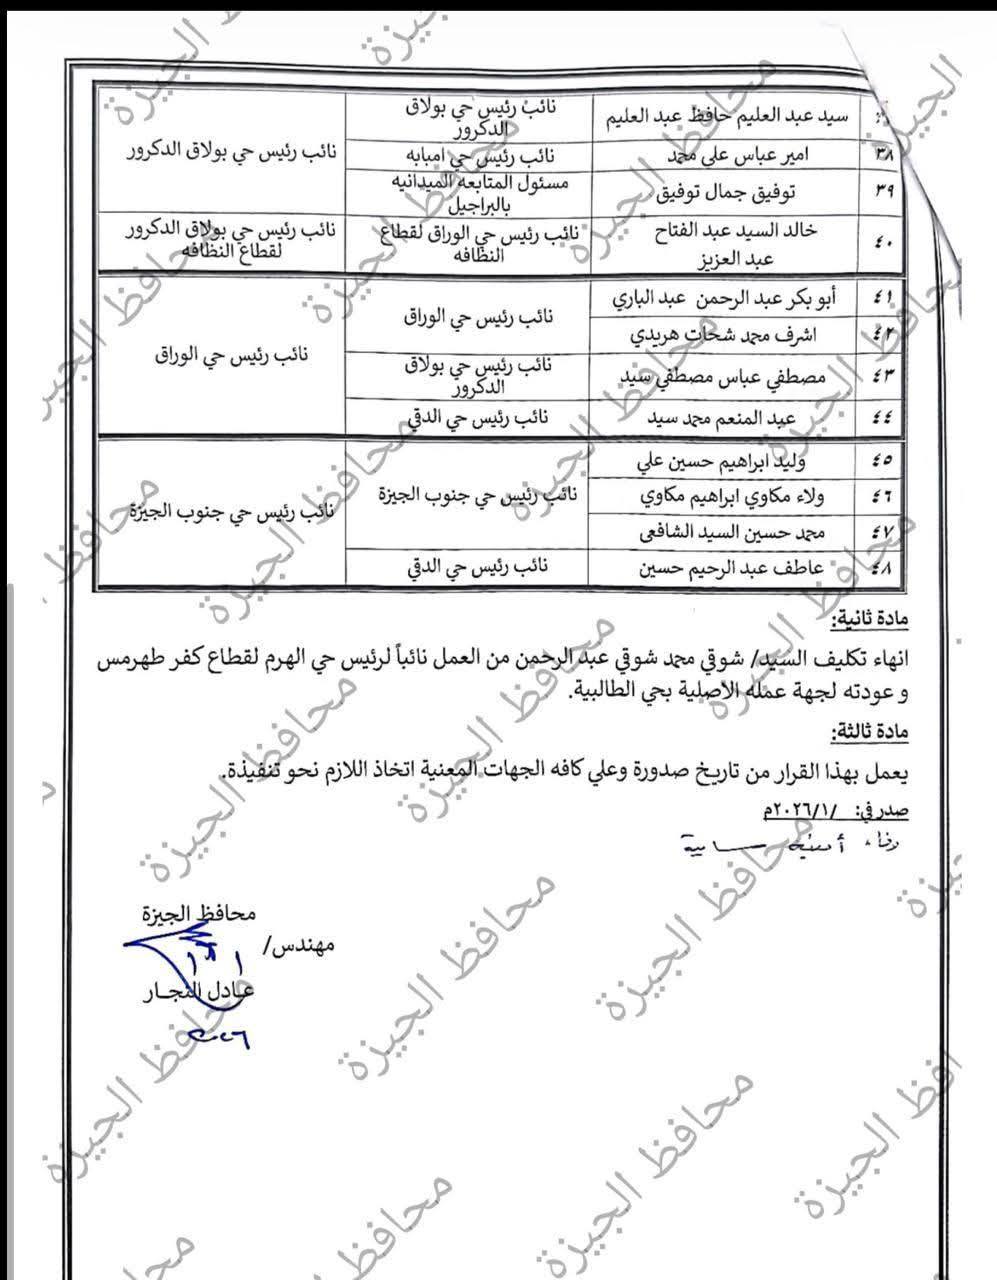 سيد عبد العليم حافظ عبد العليم
نائب رئيس حي بولاق
الدكرور
نائب رئيس حي بولاق الدكرور
٣٨
امير عباس علي محمد
نائب رئيس حي امبابه
٣٩
توفيق جمال توفيق
مسئول المتابعه الميدانيه
بالبراجيل
٤٠
خالد السيد عبد الفتاح
عبد العزيز
نائب رئيس حي الوراق لقطاع
النظافه
نائب رئيس حي بولاق الدكرور
لقطاع النظافه
٤١
أبو بكر عبد الرحمن عبد الباري
نائب رئيس حي الوراق
نائب رئيس حي الوراق
٤٢
اشرف محمد شحات هريدي
٤٣
مصطفي عباس مصطفي سيد
نائب رئيس حي بولاق
الدكرور
٤٤
عبد المنعم محمد سيد
نائب رئيس حي الدقي
٤٥
وليد ابراهيم حسين علي
نائب رئيس حي جنوب الجيزة
نائب رئيس حي جنوب الجيزة
٤٦
ولاء مكاوي ابراهيم مكاوي
٤٧
محمد حسين السيد الشافعى
٤٨
عاطف عبد الرحيم حسين
نائب رئيس حي الدقي
مادة ثانية:
انهاء تكليف السيد/ شوقي محمد شوقي عبد الرحمن من العمل نائباً لرئيس حي الهرم لقطاع كفر طهرمس
و عودته لجهة عمله الأصلية بحي الطالبية.
مادة ثالثة:
يعمل بهذا القرار من تاريخ صدورة وعلي كافه الجهات المعنية اتخاذ اللازم نحو تنفيذة.
صدر في: / /٢٠٢٦/١م
محافظ الجيزة
مهندس/
عادل النجار
٢٠٢٦
محافظ الجيزة